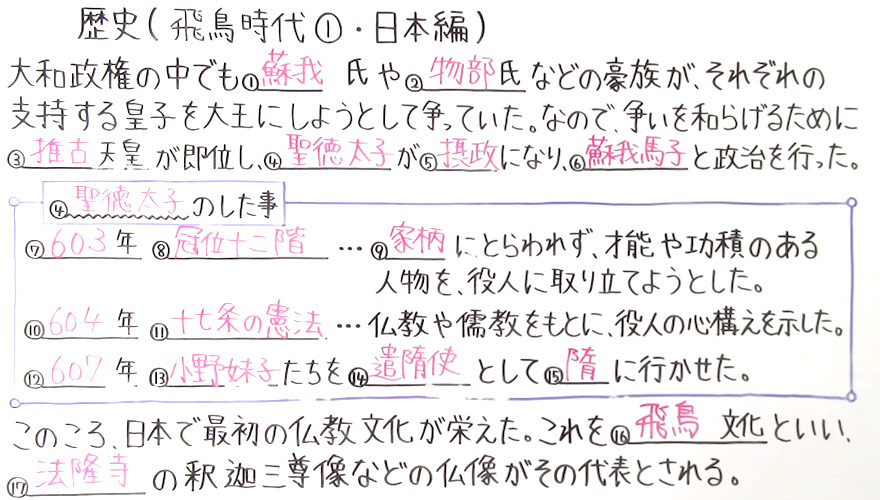 歴史(飛鳥時代①・日本編)
大和政権の中でも①蘇我 氏や②物部氏などの豪族が、それぞれの
支持する皇子を大王にしようとして争っていた。なので、争いを和らげるために
③推古天皇が即位し、④聖徳太子が⑤摂政になり、⑥蘇我馬子と政治を行った。
④聖徳太子のした事
⑦603年 ⑧冠位十二階 …⑨家柄にとらわれず、才能や功積のある
人物を、役人に取り立てようとした。
⑩604年 ⑪十七条の憲法…仏教や儒教をもとに、役人の心構えを示した。
⑫607年 ⑬小野妹子たちを⑭遣隋使として⑮隋に行かせた。
このころ、日本で最初の仏教文化が栄えた。これを⑯飛鳥 文化といい、
⑰法隆寺の釈迦三尊像などの仏像がその代表とされる。